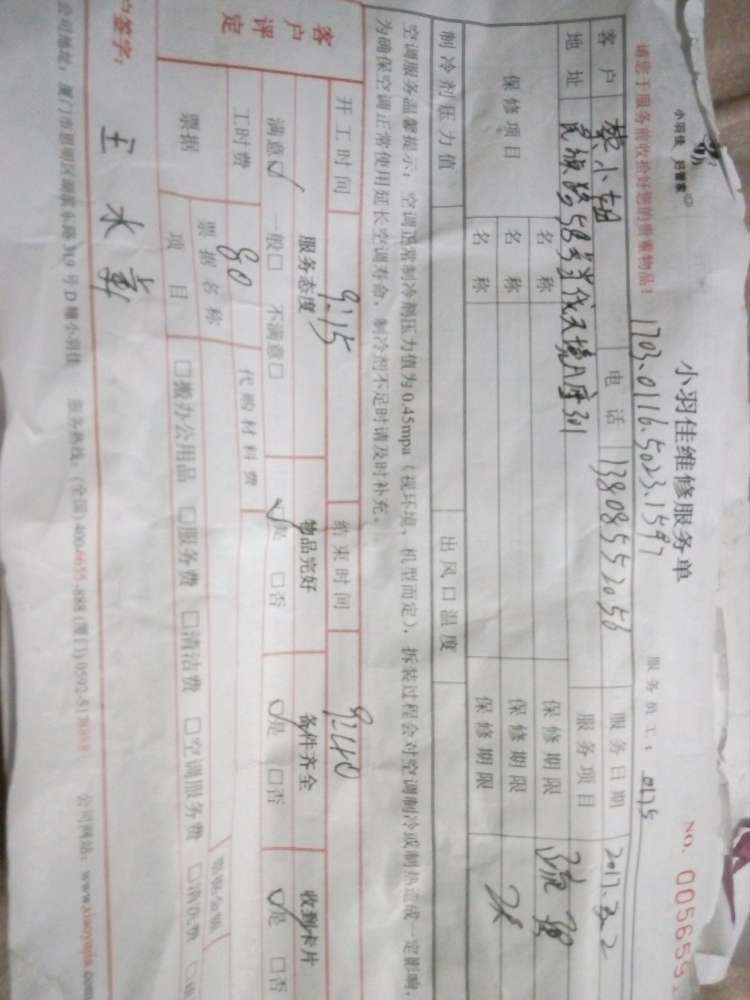 小羽佳 好管家
小羽佳维修服务单
NO. 005655
请您于服务前收拾好您的贵重物品!
1703.0116.5023.1597
服务员工: 0175
客户 电话 13808552056 服务日期 2017.3.2
地址 民族路58号当代天境 服务项目
保修项目 名称 保修期限
名称 保修期限
名称 保修期限
制冷剂压力值 出风口温度
空调服务温馨提示:空调正常制冷剂压力值为0.45mpa(视环境、机型而定),拆装过程会对空调制冷或制热造成一定影响,
为确保空调正常使用延长空调寿命,制冷剂不足时请及时补充。
开工时间 9:15 结束时间 9:40
客户评定 服务态度 物品完好 备件齐全 收到卡片
满意☑ 一般□ 不满意□ ☑是 □否 ☑是 □否 ☑是 □否
工时费 80 代购材料费
票据 票据名称 票据金额
项目 □搬办公用品 □服务费 □清洁费 □空调服务费 □消杀费
户签字: 王水
公司地址:厦门市思明区 319号D幢小羽佳 服务热线:(全国)400-6655-888 (厦门)0592-5178 公司网站:www.xiaoyujia.com